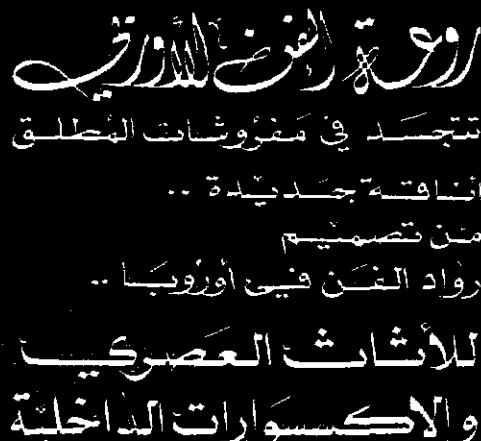 روعة الفن الأوربي
تتجسد في مفروشات المطلق
أناقة جديدة ..
من تصميم
رواد الفن في أوروبا ..
للأثاث العصري
والاكسسوارات الداخلية